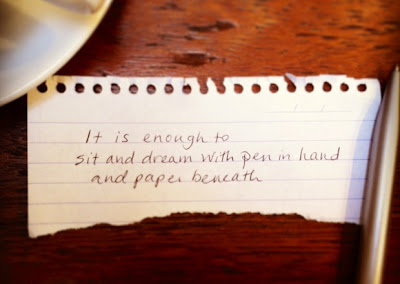 It is enough to
sit and dream with pen in hand
and paper beneath